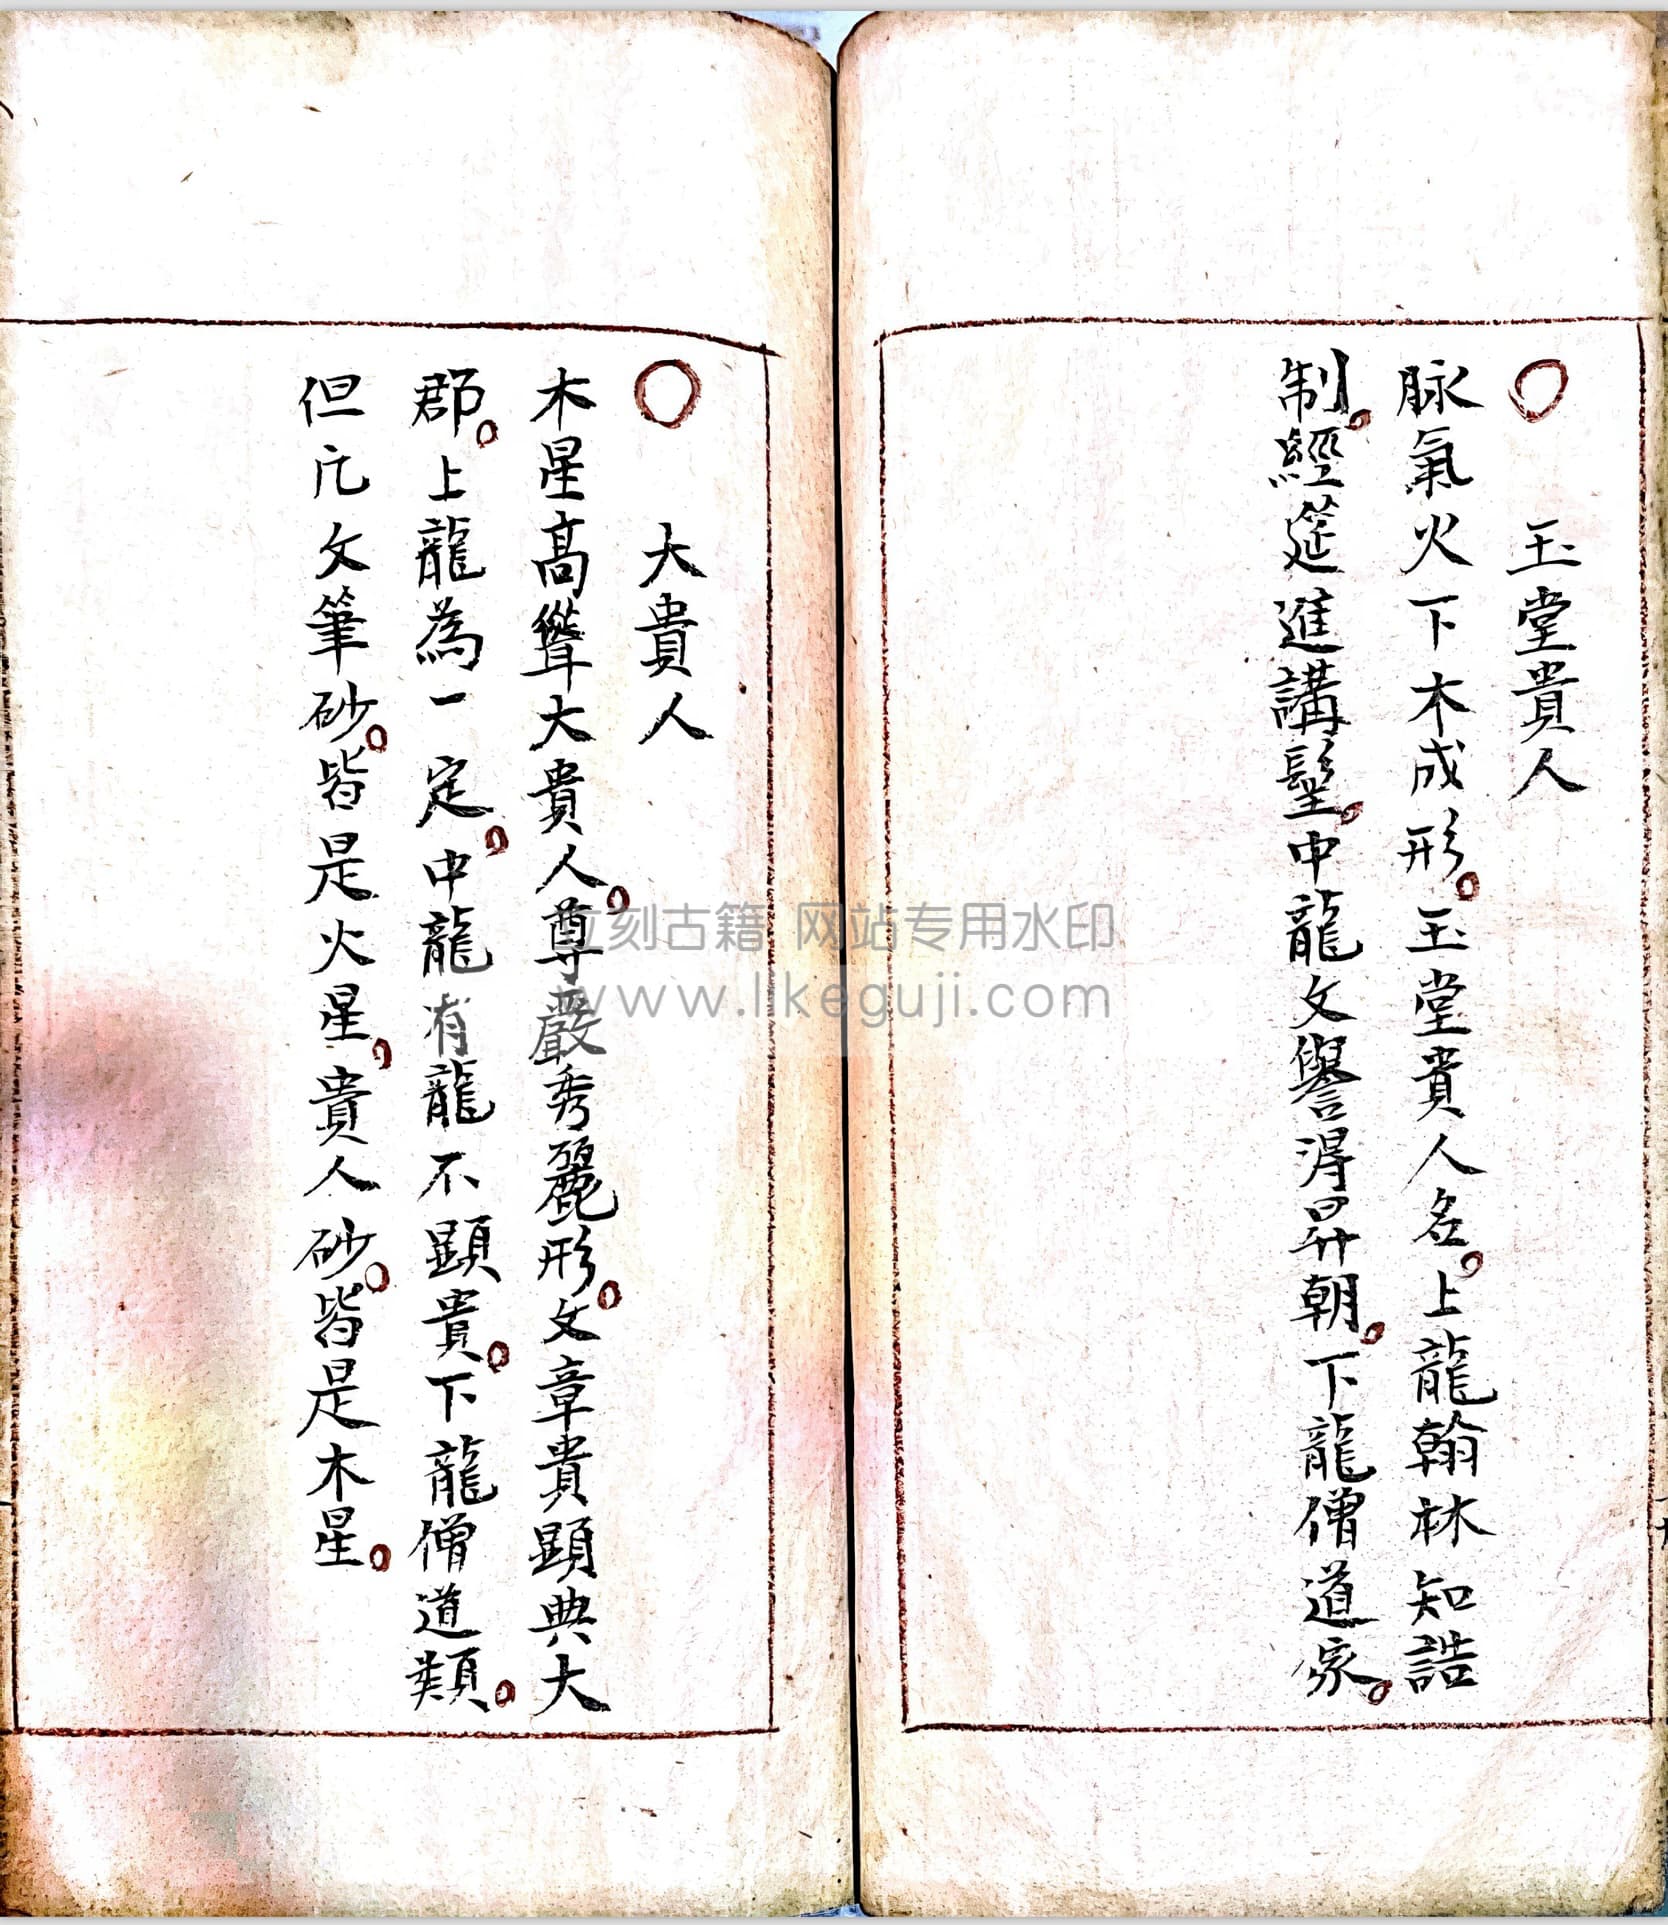 ○ 玉堂貴人
脉氣火下木成形。玉堂貴人名。上龍翰林知誥
制。經筵進講髽。中龍文譽得昇朝。下龍僧道家。
○ 大貴人
木星高聳大貴人。尊嚴秀麗形。文章貴顯典大
郡。上龍為一定。中龍有龍不顯貴。下龍僧道類。
但凢文筆砂。皆是火星。貴人砂。皆是木星。
立刻古籍 网站专用水印
www.likeguji.com